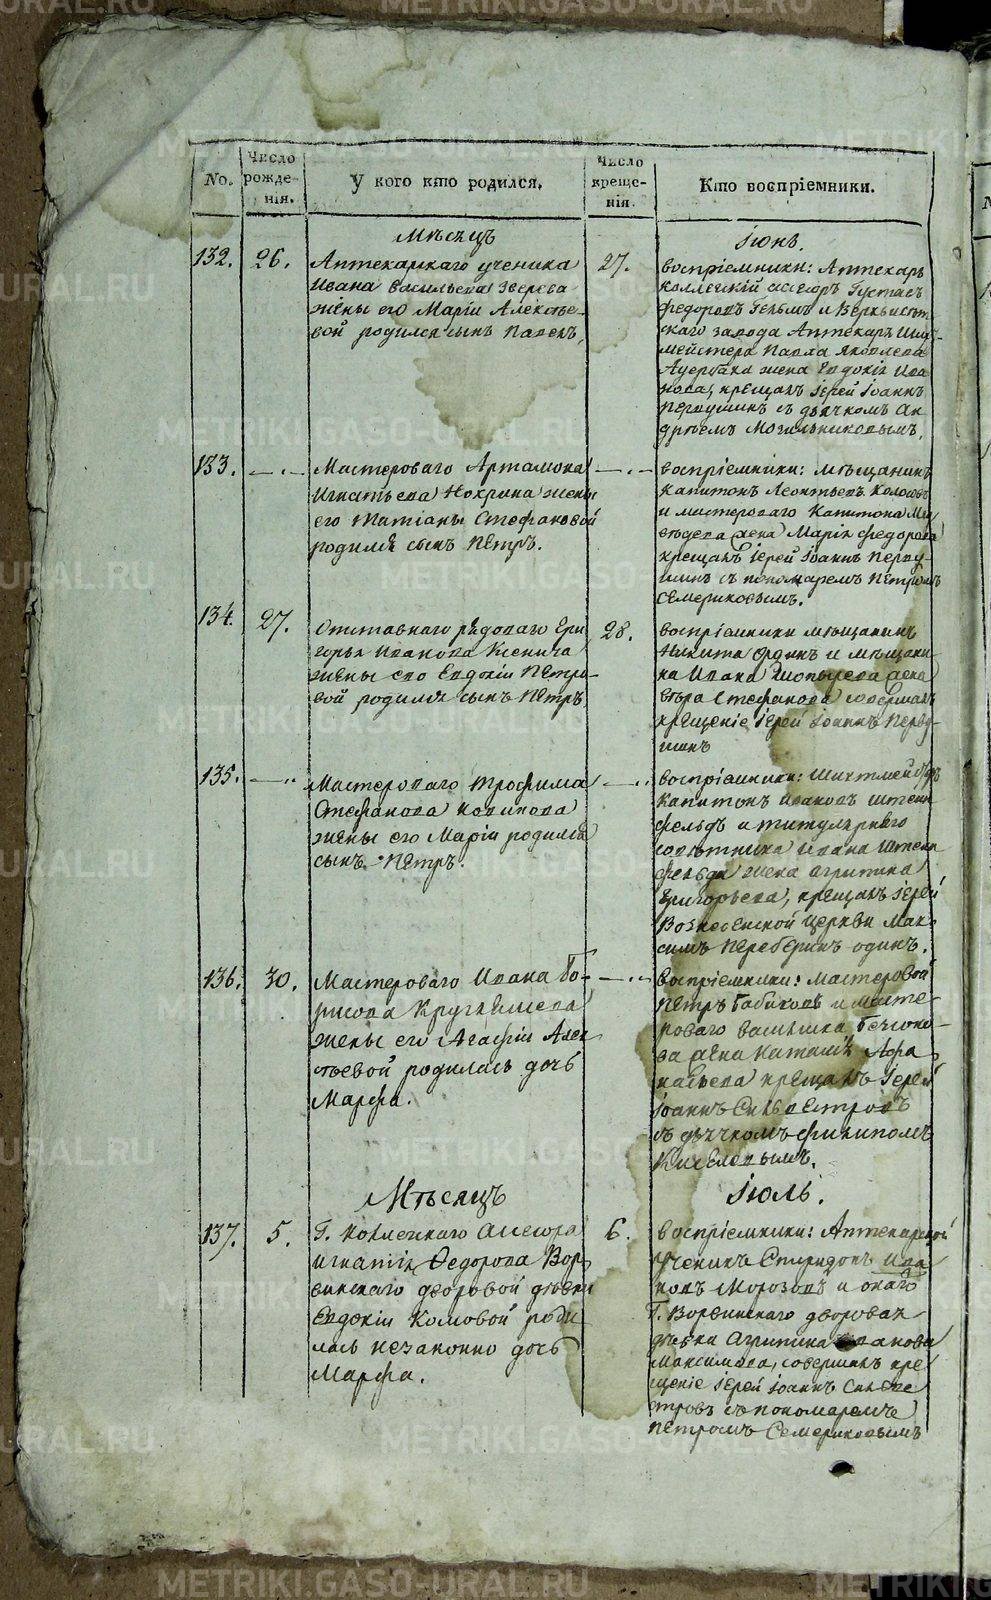 METRIKI.GASO-URAL.RU
No.
Число рожде-нія.
У кого кто родился.
Число креще-нія.
Кто воспріемники.
Мѣсяцъ
Іюнь.
132.
26.
Аптекарскаго ученика
Ивана Васильева Зверева
жены его Маріи Алексѣе-
вой родился сынъ Павелъ,
27.
воспріемники: Аптекарь
коллежскій асесоръ Густавъ
Федоровъ Гельмъ и Верхъисет-
скаго завода Аптекаря
мейстера Павла Яковлева
жена Евдокія Ива
нова, крещалъ Іерей Іоаннъ
Первушинъ съ дьячкомъ Ан
дреемъ Могильниковымъ.
133.
Мастероваго Артамона
Игнатьева Нохрина жены
его Татіаны Стефановой
родился сынъ Петръ.
воспріемники: мѣщанинъ
Капитонъ Леонтьевъ
и мастероваго Капитона Ме
ведева жена Марія Федорова
крещалъ Іерей Іоаннъ Перву-
шинъ съ пономаремъ Петромъ
Семериковымъ.
134.
27.
Отставнаго рядоваго Гри
горья Иванова
жены его Евдокіи Петро-
вой родился сынъ Петръ
28.
воспріемники мѣщанинъ
Никита и мѣщани-
на Ивана жена
Стефанова совершалъ
крещеніе Іерей Іоаннъ Перву-
шинъ
135.
Мастероваго Трофима
Стефанова Новикова
жены его Маріи родился
сынъ Петръ.
воспріемники: Шихтмейстеръ
Капитонъ Ивановъ Штейн
фельдъ и титулярнаго
совѣтника Ивана Штейн
фельда жена Агрипина
Григорьева, крещалъ Іерей
Вознесенской церкви Мак-
симъ Переберинъ одинъ.
136.
30.
Мастероваго Ивана Бо-
рисова
жены его Агафіи Алек
сѣевой родилась дочь
Марфа.
воспріемники: мастеровой
Петръ Бабиковъ и масте-
роваго
ва жена Наталія Афа
насьева крещалъ Іерей
Іоаннъ Сильвестровъ
съ дьячкомъ Филипомъ
Киселевымъ.
Мѣсяцъ
Іюль.
137.
5.
Г. Коллежскаго Асесора
Игнатія Федорова Вор
винскаго дворовой дѣвки
Евдокіи Комовой роди
лась незаконно дочь
Марфа.
6.
воспріемники: Аптекарской
ученикъ Спиридонъ Ива
новъ Морозовъ и онаго
Г. Ворвинскаго дворовая
дѣвка Агрипина Иванова
Максимова, совершалъ кре
щеніе Іерей Іоаннъ Сильве
стровъ съ пономаремъ
Петромъ Семериковымъ